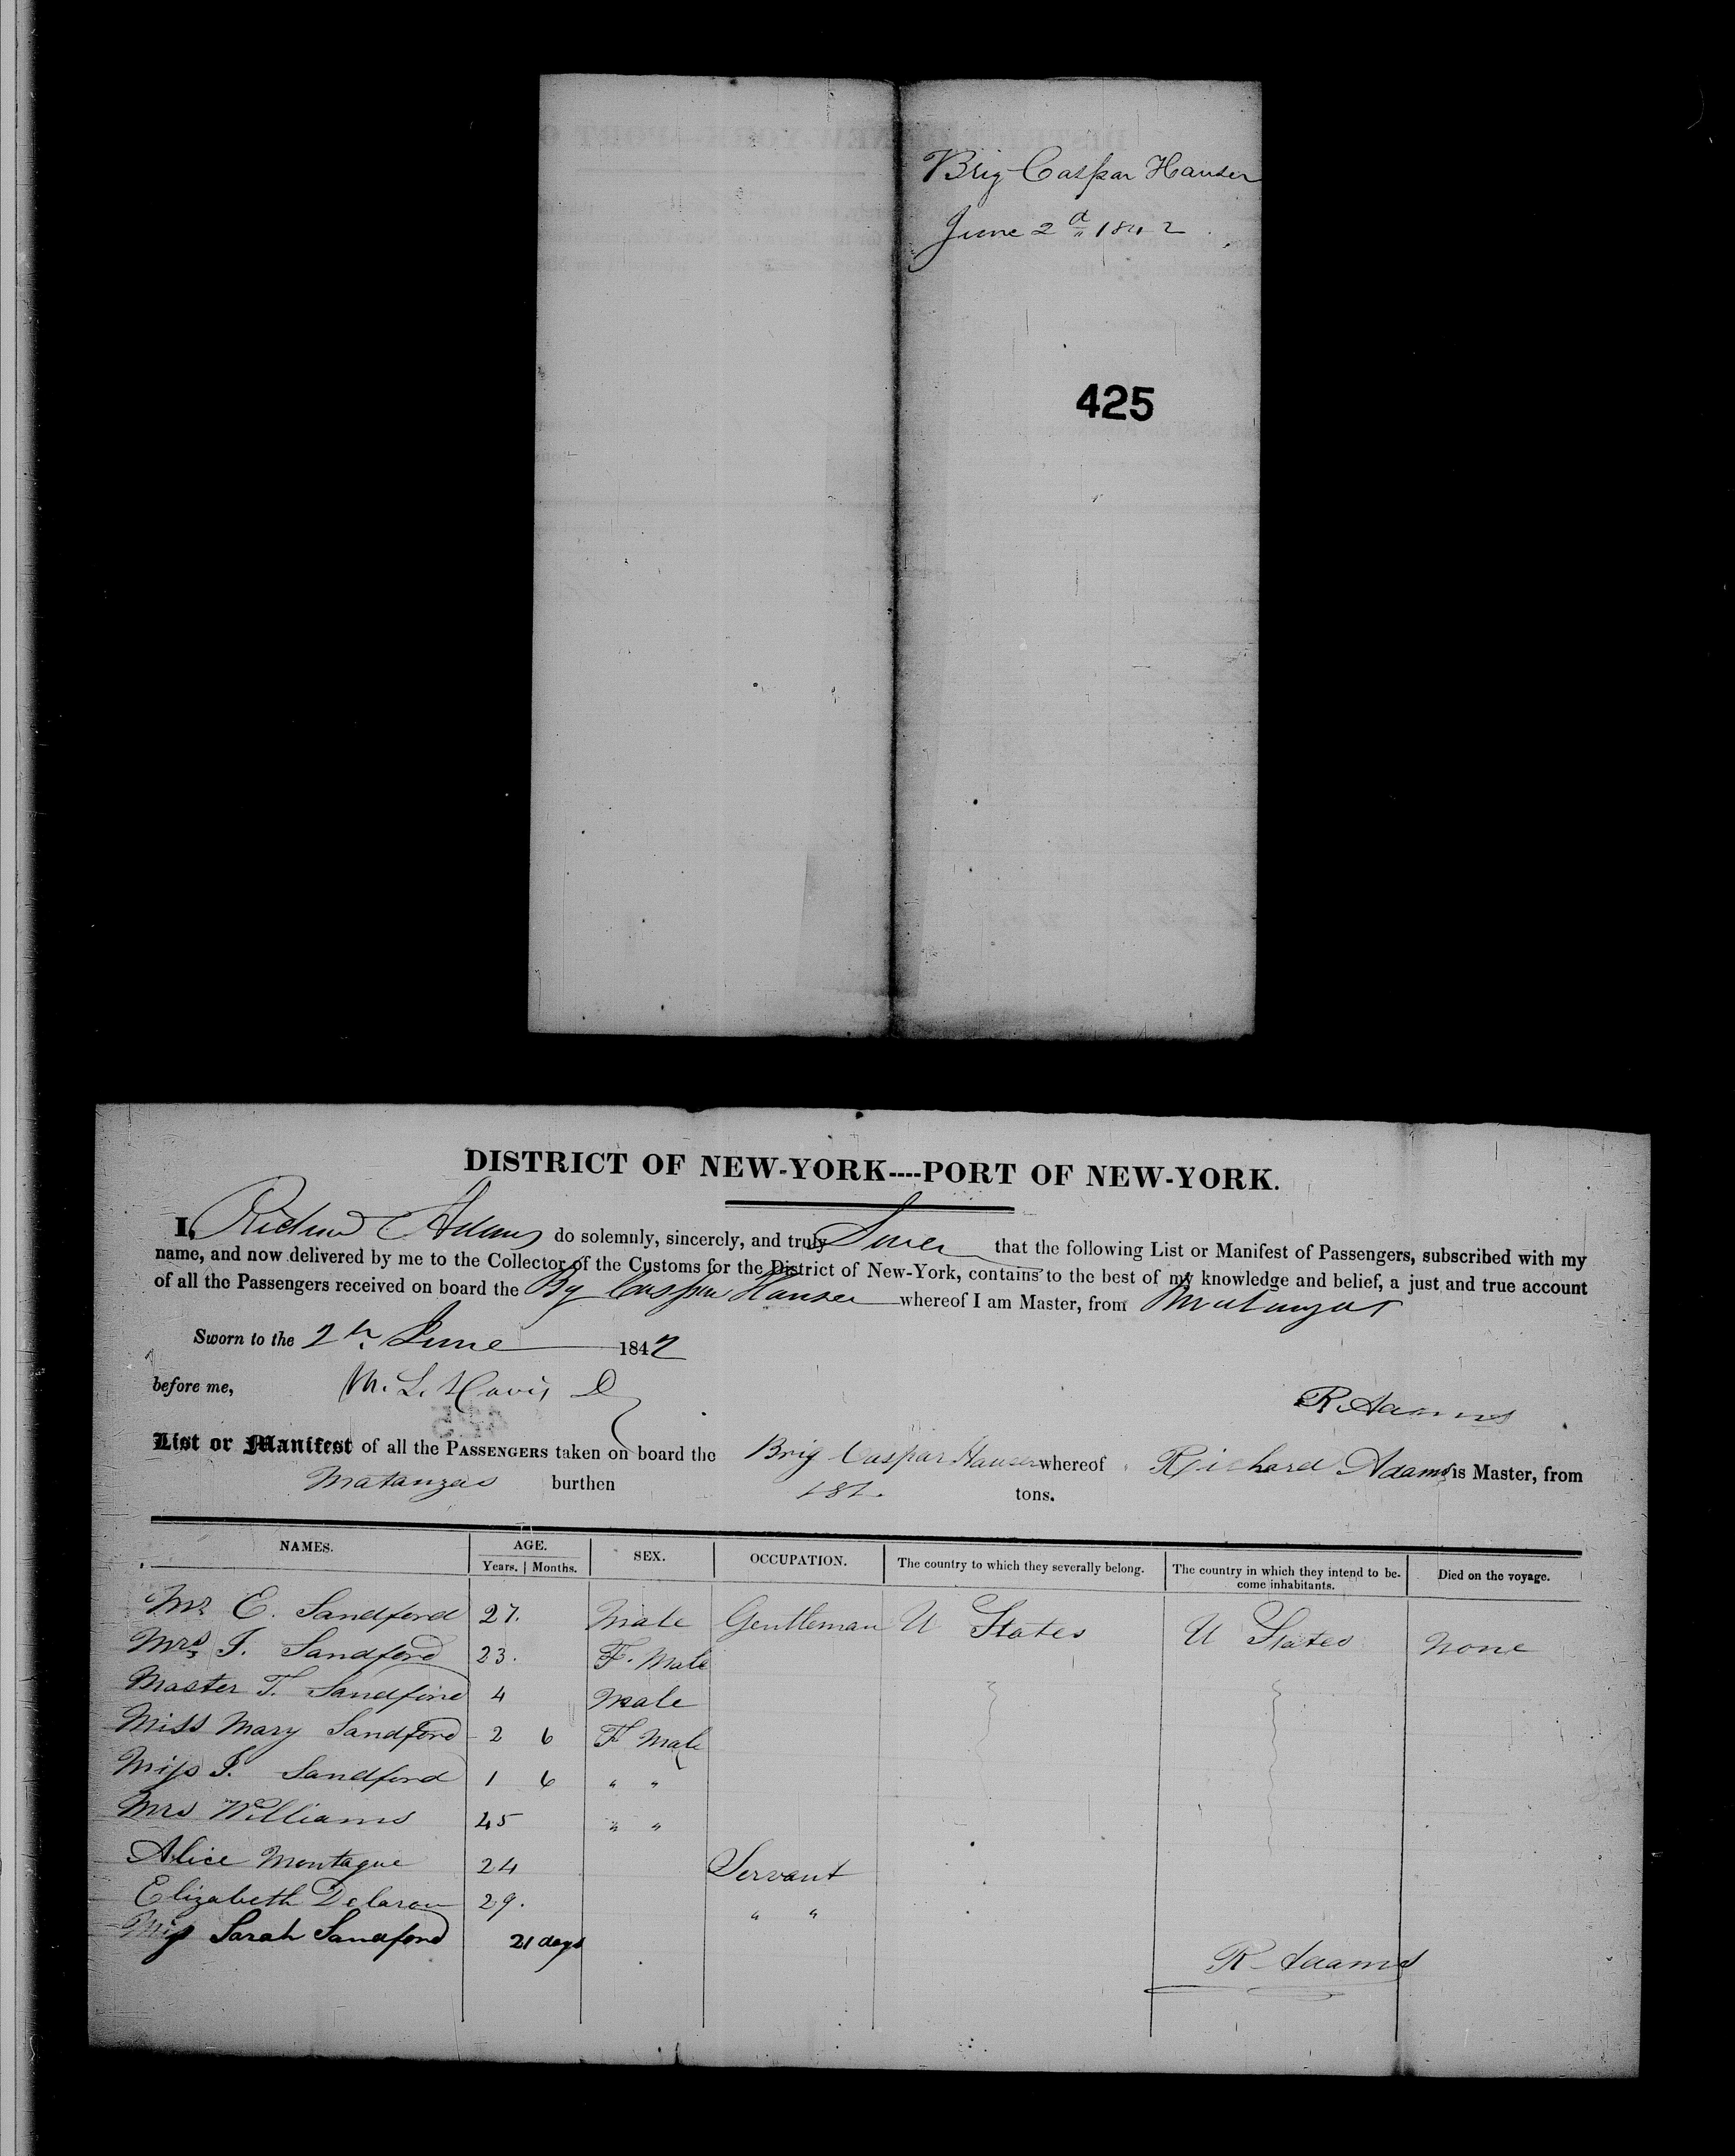 Brig Caspar Hauser
June 2d 1842
425
DISTRICT OF NEW-YORK----PORT OF NEW-YORK.
I, Richard Adams do solemnly, sincerely, and truly Swear that the following List or Manifest of Passengers, subscribed with my
name, and now delivered by me to the Collector of the Customs for the District of New-York, contains to the best of my knowledge and belief, a just and true account
of all the Passengers received on board the Bg Caspar Hauser whereof I am Master, from Matanzas
Sworn to the 2 June 1842
before me, M. L. Davis D
R Adams
List or Manifest of all the PASSENGERS taken on board the Brig Caspar Hauser whereof Richard Adams is Master, from
Matanzas burthen 181. tons.
NAMES. AGE. SEX. OCCUPATION. The country to which they severally belong. The country in which they intend to be- Died on the voyage.
Years. Months. come inhabitants.
Mr E. Sandford 27. Male Gentleman U States U States None
Mrs I. Sandford 23. F. Male
Master T. Sandford 4 Male
Miss Mary Sandford 2 6 F Male
Miss I. Sandford 1 6 " "
Mrs Williams 45 " "
Alice Montague 24 Servant
Elizabeth 29. " "
Miss Sarah Sandford 21 days
R Adams